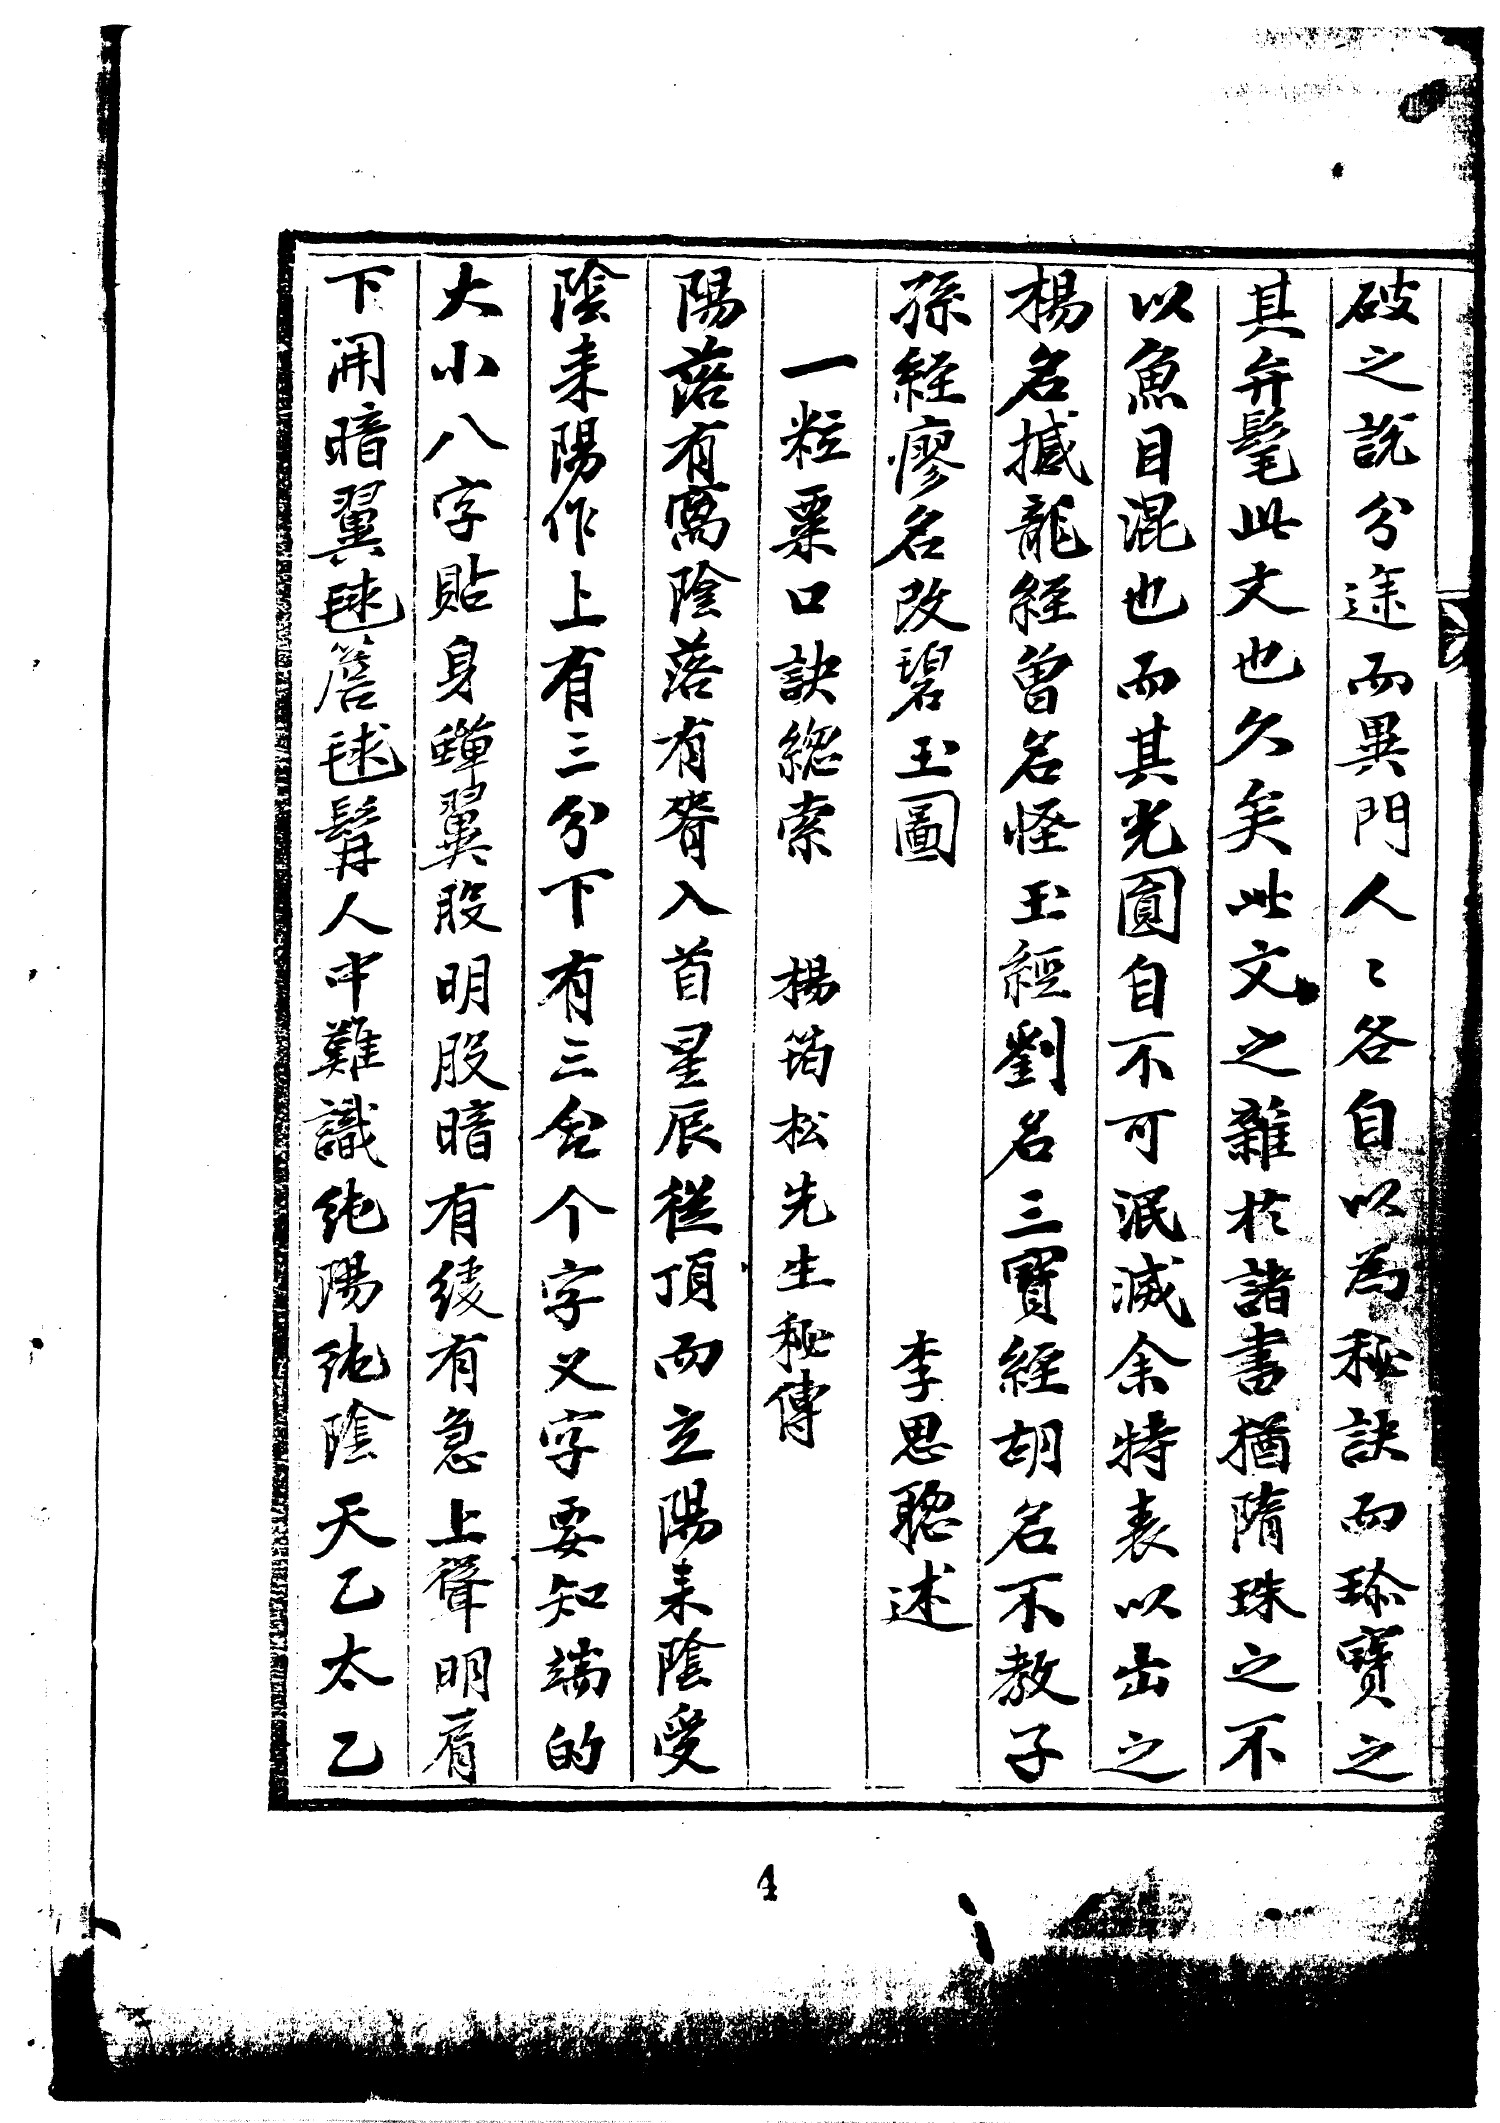 破之說分途而異門人〻各自以為秘訣而珎寶之
其弁髦此文也久矣此文之雜於諸書猶隋珠之不
以魚目混也而其光圓自不可泯滅余特表以出之
楊名撼龍經曾名怪玉經劉名三寶經胡名不教子
孫經廖名改碧玉圖 李思聰述
一粒粟口訣總索 楊筠松先生秘傳
陽落有窩陰落有脊入首星辰從頂而立陽來陰受
陰来陽作上有三分下有三合个字义字要知端的
大小八字貼身蟬翼股明股暗有緩有急上聳明肩
下開暗翼毬簷毬髯人中難識純陽純陰天乙太乙
4